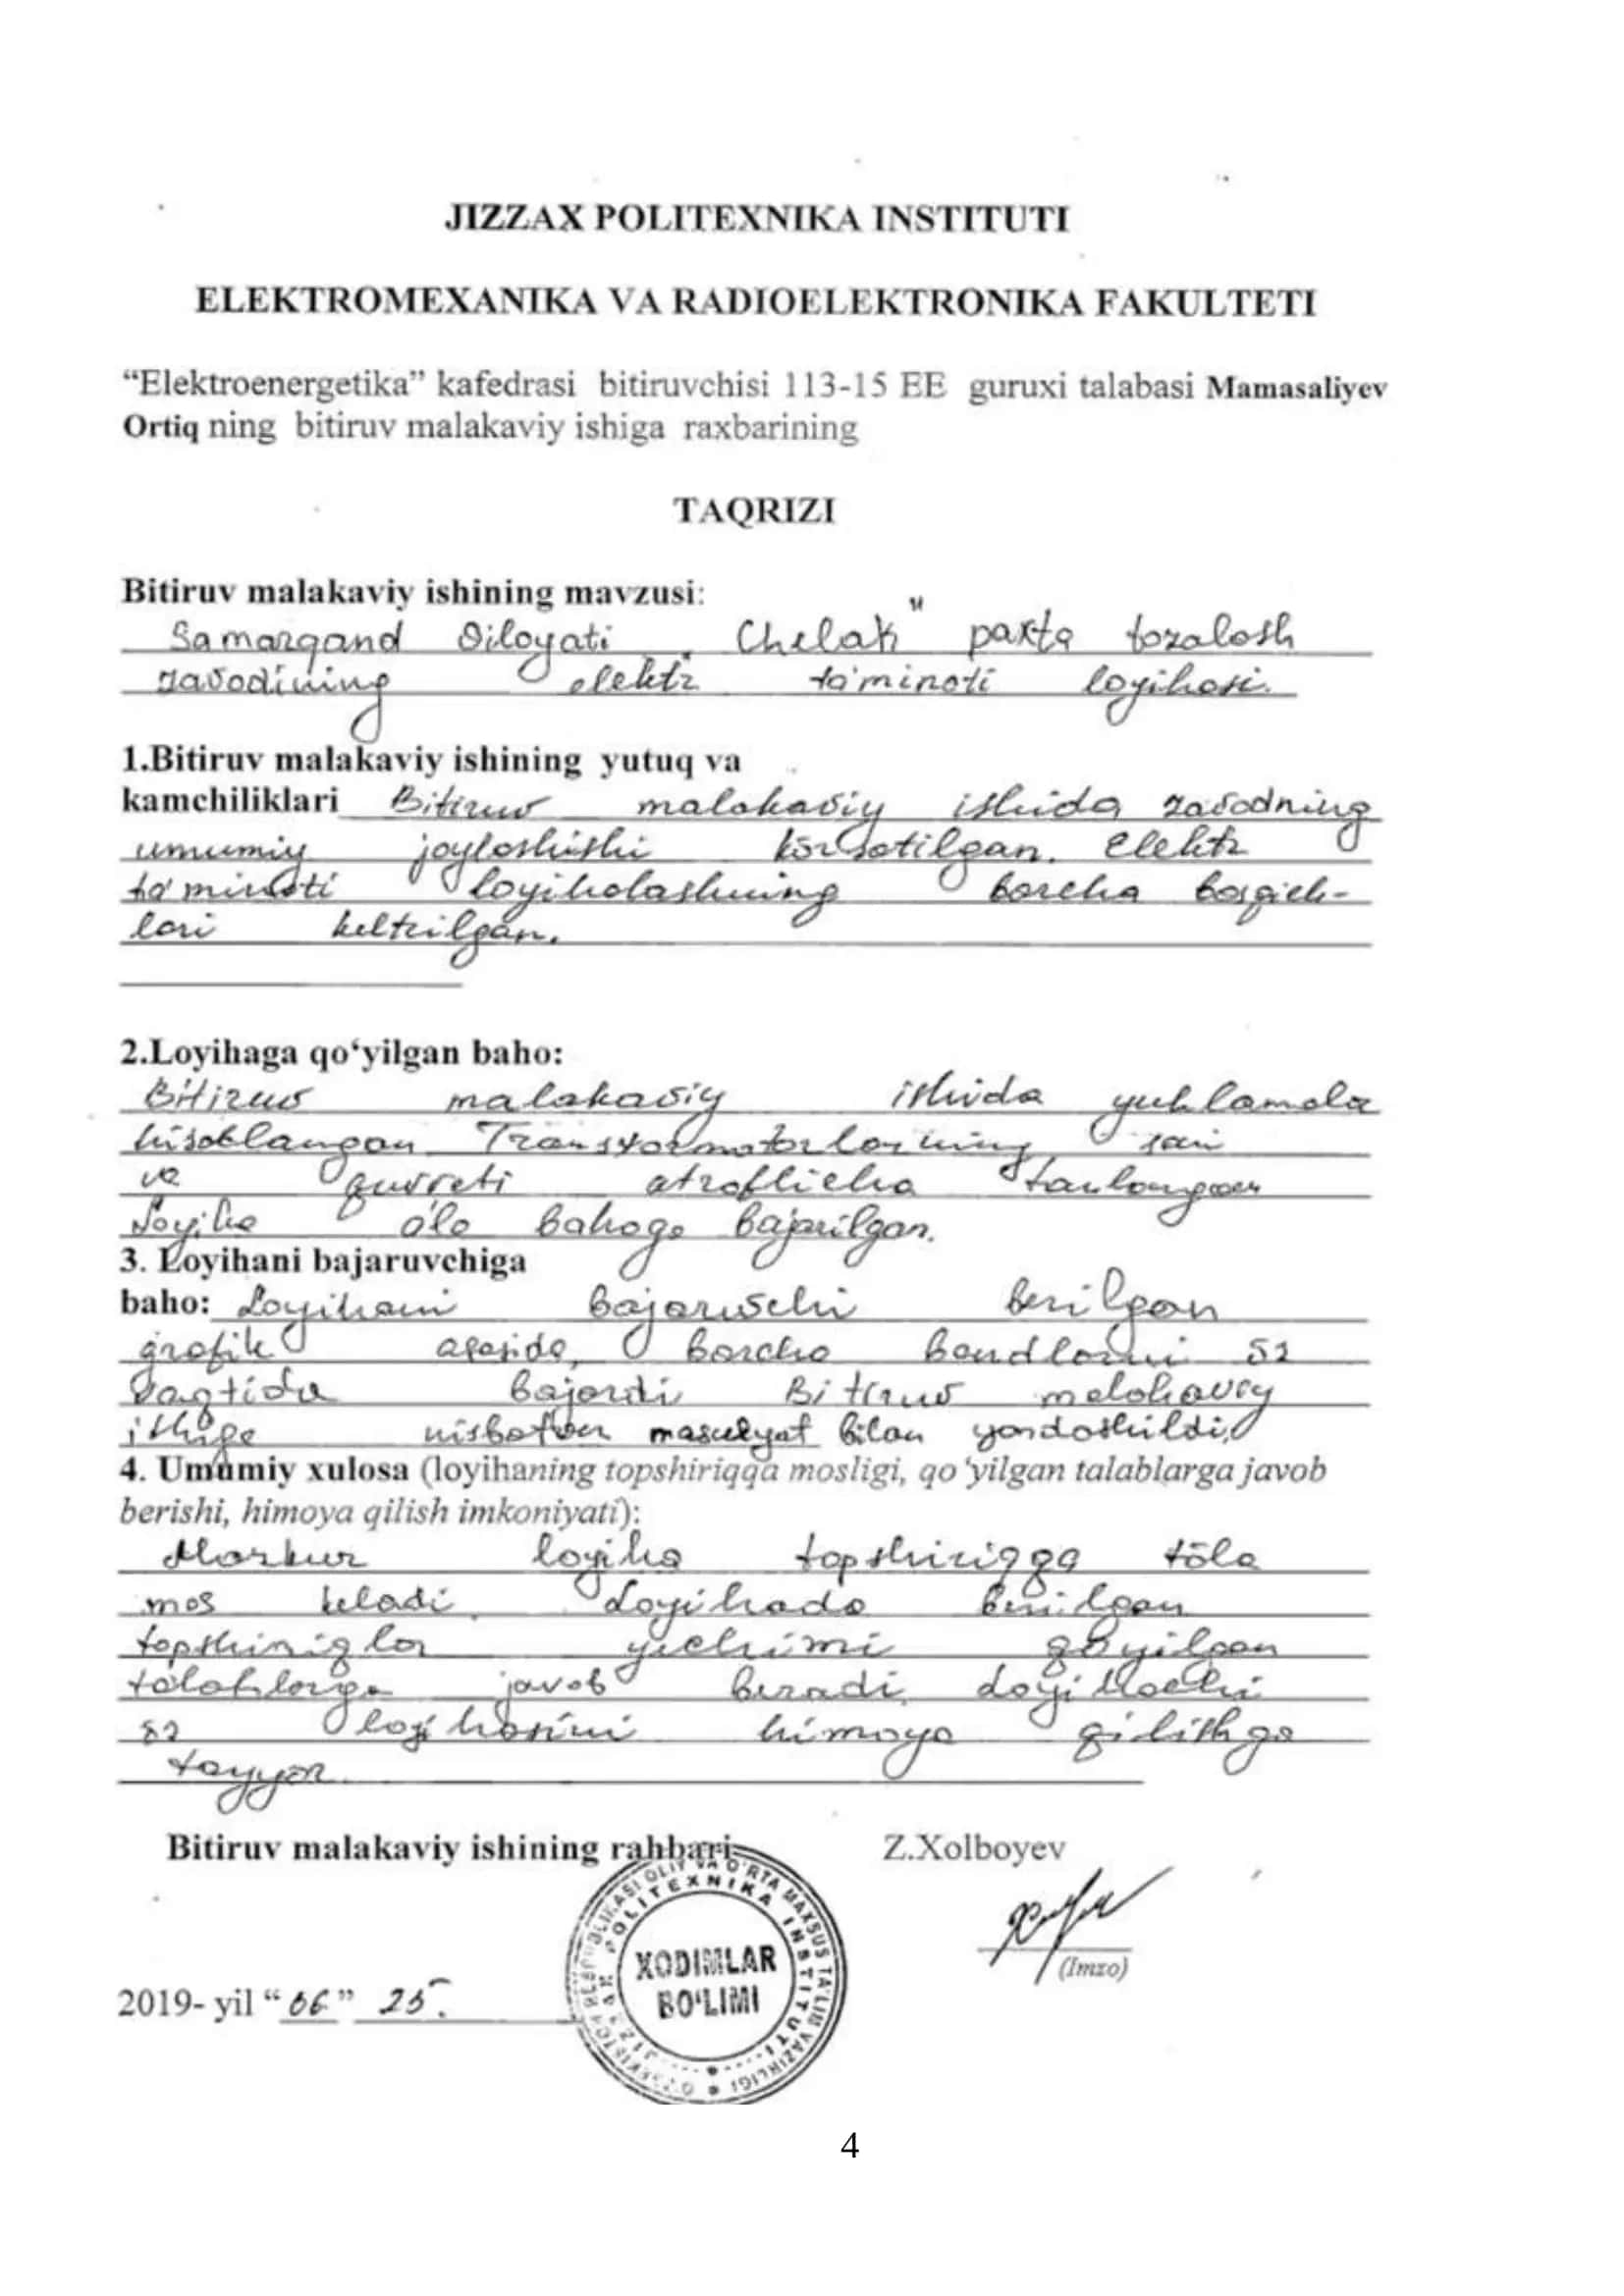 JIZZAX POLITEXNIKA INSTITUTI
ELEKTROMEXANIKA VA RADIOELEKTRONIKA FAKULTETI
“Elektroenergetika” kafedrasi bitiruvchisi 113-15 EE guruxi talabasi Mamasaliyev
Ortiq ning bitiruv malakaviy ishiga raxbarining
TAQRIZI
Bitiruv malakaviy ishining mavzusi:
Samarqand viloyati „Chelak" paxta tozalash
zavodining elektr ta'minoti loyihasi.
1.Bitiruv malakaviy ishining yutuq va
kamchiliklari Bitiruv malakaviy ishida zavodning
umumiy joylashishi ko'rsatilgan. Elektr
ta'minoti loyihalashning barcha bosqich-
lari keltrilgan.
2.Loyihaga qo‘yilgan baho:
Bitiruv malakaviy ishida yuklamala
hisoblangan Transformatorlarning sani
va quvvati atroflicha tanlangan
Loyiha a'lo bahoga bajarilgan.
3. Loyihani bajaruvchiga
baho: Loyihani bajaruvchi berilgan
grafik asosida, barcha bandlarni o'z
vaqtida bajardi Bitiruv malakaviy
ishiga nisbatan masulyat bilan yondoshildi.
4. Umumiy xulosa (loyihaning topshiriqqa mosligi, qo‘yilgan talablarga javob
berishi, himoya qilish imkoniyati):
Mazkur loyiha topshiriqqa to'la
mos keladi. Loyihada berilgan
topshiriqlar yechimi qo'yilgan
talablarga javob beradi.
o'z loyihasini himoya qilishga
tayyor.
Bitiruv malakaviy ishining rahbari Z.Xolboyev
(Imzo)
2019- yil “06” 25.
O‘ZBEKISTON RESPUBLIKASI OLIY VA O‘RTA MAXSUS TA’LIM VAZIRLIGI
JIZZAX POLITEXNIKA INSTITUTI
XODIMLAR
BO‘LIMI
4